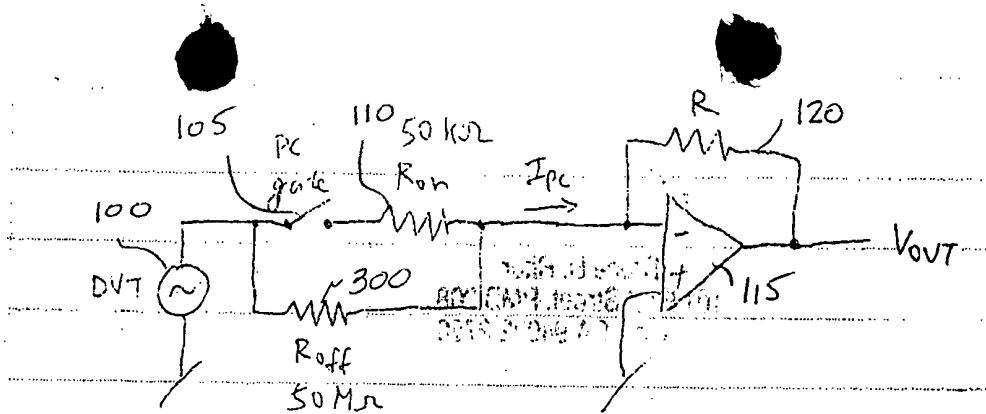 105
PC
gate
110
50 kΩ
Ron
Ipc
R
120
100
DVT
~300
Roff
50 MΩ
-
+
115
VOUT